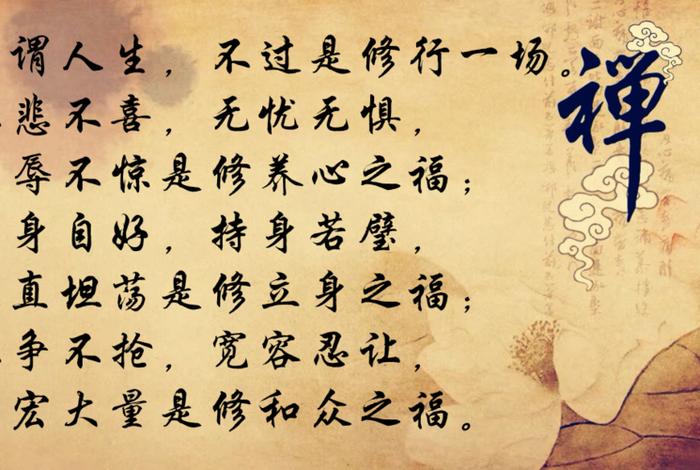 谓人生，不过是修行一场。
悲不喜，无忧无惧，
辱不惊是修养心之福；
身自好，持身若璧，
直坦荡是修立身之福；
争不抢，宽容忍让，
宏大量是修和众之福。
禅